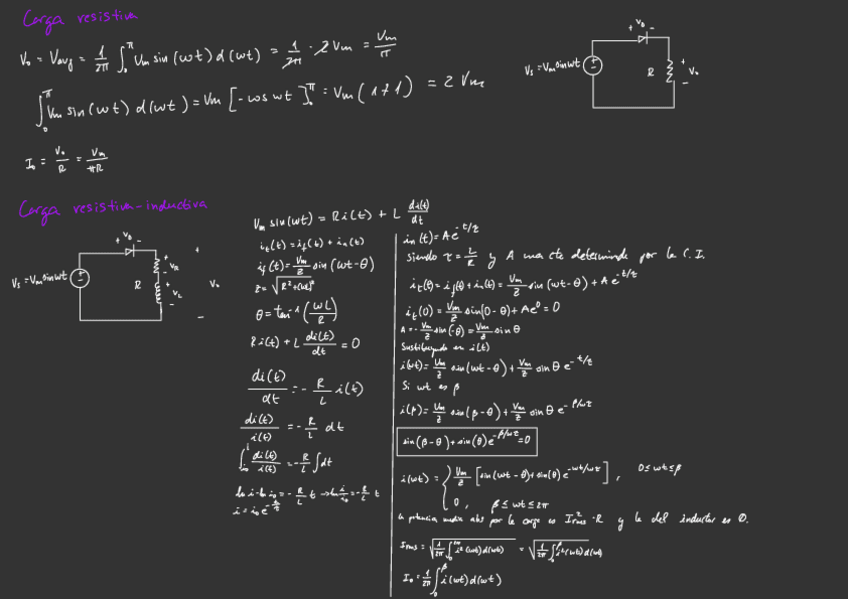 Carga resistiva
V₀ = Vavg = 1/2π ∫₀^π Vm sin(wt) d(wt) = 1/2π · 2Vm = Vm/π
∫₀^π Vm sin(wt) d(wt) = Vm [-cos wt]₀^π = Vm(1+1) = 2Vm
I₀ = V₀/R = Vm/πR
+ VD -
Vs = Vm sin wt
R
+ V₀ -
Carga resistiva-inductiva
+ VD -
Vs = Vm sin wt
R
+ VR -
+ VL -
+ V₀ -
Vm sin(wt) = Ri(t) + L di(t)/dt
it(t) = if(t) + in(t)
if(t) = Vm/Z sin(wt-θ)
Z = √(R²+(wL)²)
θ = tan⁻¹(wL/R)
Ri(t) + L di(t)/dt = 0
di(t)/dt = -R/L i(t)
di(t)/i(t) = -R/L dt
∫ di(t)/i(t) = -R/L ∫dt
ln i - ln i₀ = -R/L t → ln i/i₀ = -R/L t
in(t) = Ae^-t/τ
siendo τ = L/R y A una cte determinada por la C.I.
it(t) = if(t) + in(t) = Vm/Z sin(wt-θ) + Ae^-t/τ
it(0) = Vm/Z sin(0-θ) + Ae⁰ = 0
A = -Vm/Z sin(-θ) = Vm/Z sin θ
Sustituyendo en i(t)
i(wt) = Vm/Z sin(wt-θ) + Vm/Z sin θ e^-t/τ
Si wt es β
i(β) = Vm/Z sin(β-θ) + Vm/Z sin θ e^-β/wτ
sin(β-θ) + sin(θ)e^-β/wτ = 0
i(wt) = { Vm/Z [sin(wt-θ) + sin(θ)e^-wt/wτ], 0≤wt≤β
0, β≤wt≤2π
la potencia media abs por la carga es I²rms·R y la del inductor es 0.
Irms = √(1/2π ∫₀^2π i²(wt)d(wt)) = √(1/2π ∫₀^β i²(wt)d(wt))
I₀ = 1/2π ∫₀^β i(wt)d(wt)